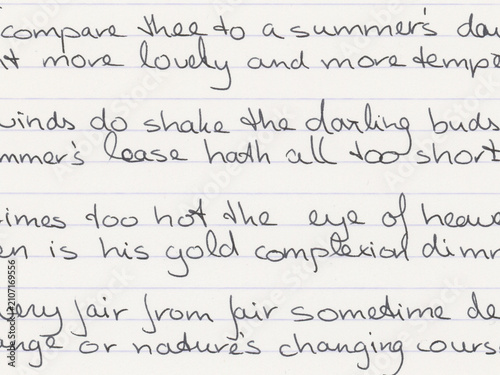 compare thee to a summer's da
t more lovely and more tempe
winds do shake the darling buds
mmer's lease hath all too short
times too hot the eye of heave
en is his gold complexion dimm
very fair from fair sometime de
ange or nature's changing cours
Adobe Stock | #2107169556